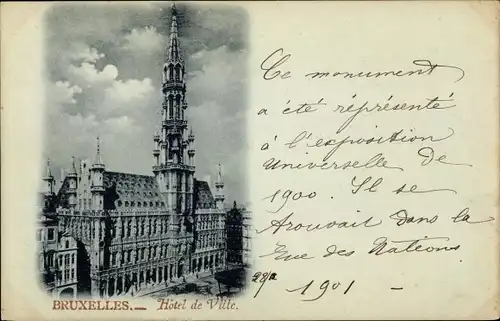 Ce monument
a été représenté
à l'exposition
Universelle De
1900. Il se
trouvait dans la
Rue des Nations.
1901 -
BRUXELLES. — Hôtel de Ville.